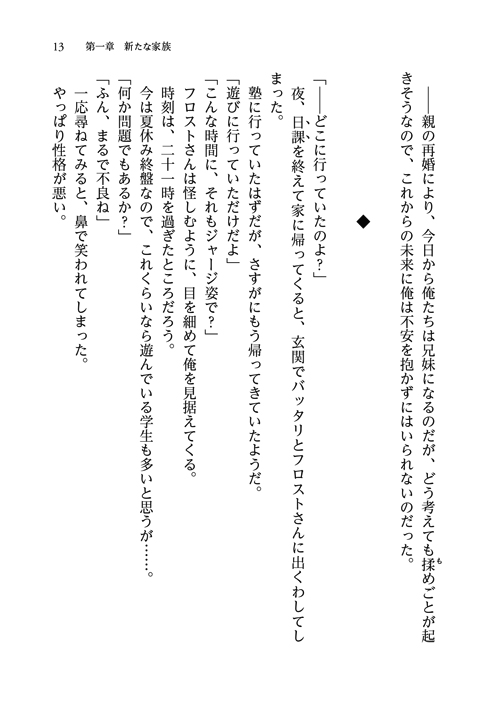 13　第一章　新たな家族
――親の再婚により、今日から俺たちは兄妹になるのだが、どう考えても揉めごとが起
きそうなので、これからの未来に俺は不安を抱かずにはいられないのだった。
◆
「――どこに行っていたのよ？」
夜、日課を終えて家に帰ってくると、玄関でバッタリとフロストさんに出くわしてし
まった。
塾に行っていたはずだが、さすがにもう帰ってきていたようだ。
「遊びに行っていただけだよ」
「こんな時間に、それもジャージ姿で？」
フロストさんは怪しむように、目を細めて俺を見据えてくる。
時刻は、二十一時を過ぎたところだろう。
今は夏休み終盤なので、これくらいなら遊んでいる学生も多いと思うが……。
「何か問題でもあるか？」
「ふん、まるで不良ね」
一応尋ねてみると、鼻で笑われてしまった。
やっぱり性格が悪い。